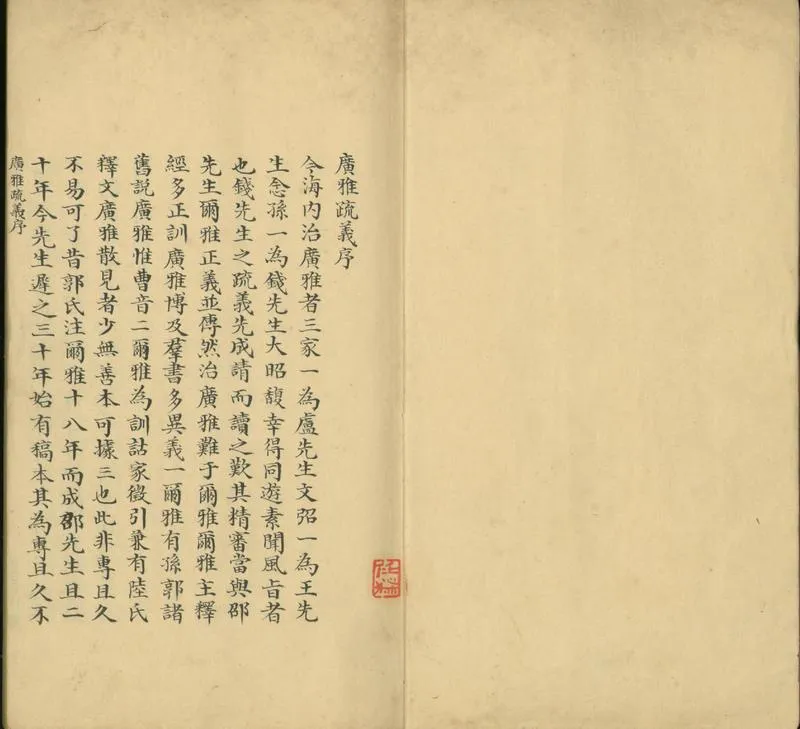 廣雅疏義序
今海內治廣雅者三家一為盧先生文弨一為王先
生念孫一為錢先生大昭馥幸得同遊素聞風旨者
也錢先生之疏義先成請而讀之歎其精審當與邵
先生爾雅正義並傳然治廣雅難于爾雅爾雅主釋
經多正訓廣雅博及羣書多異義一爾雅有孫郭諸
舊說廣雅惟曹音二爾雅為訓詁家徵引兼有陸氏
釋文廣雅散見者少無善本可據三也此非專且久
不易可了昔郭氏注爾雅十八年而成邵先生且二
十年今先生遲之三十年始有稿本其為專且久不
廣雅疏義序